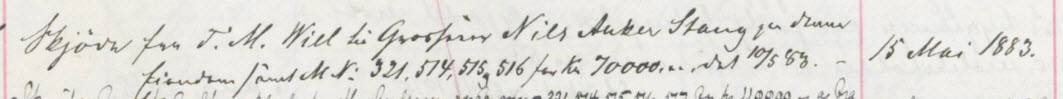 Skjøde fra T. M. Will til Grosserer Nils Anker Stang paa denne
Eiendom samt M N: 321, 514, 515 & 516 for Kr 70000.... dat 10/5 83. – 15 Mai 1883.